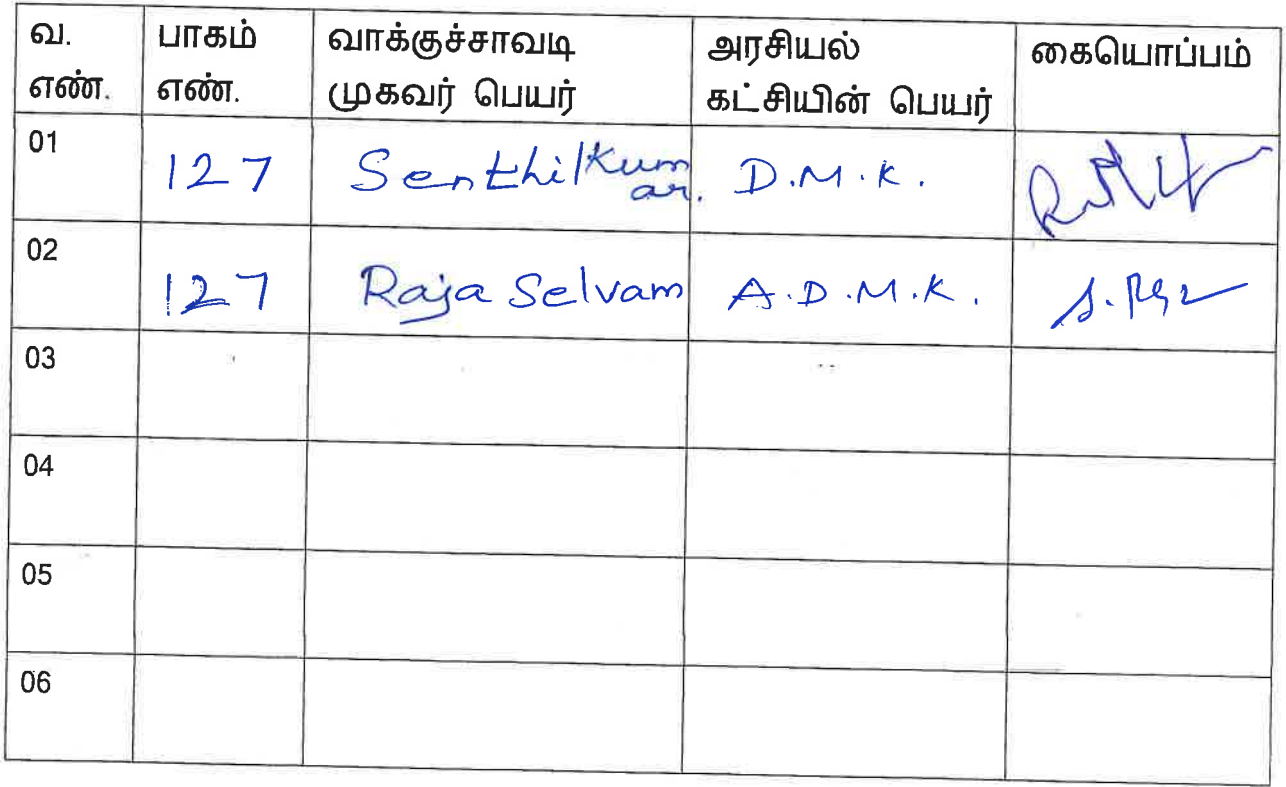 வ. எண். பாகம் எண். வாக்குச்சாவடி முகவர் பெயர் அரசியல் கட்சியின் பெயர் கையொப்பம்
01 127 Senthilkumar. D.M.K.
02 127 Raja Selvam A.D.M.K.
03
04
05
06